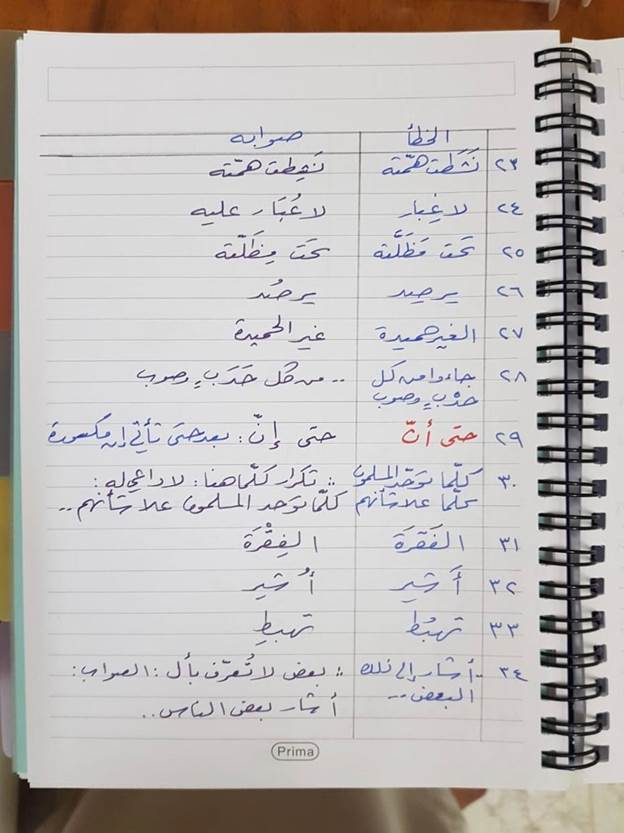 الخطأ صوابه
٢٣ نَشَطت همّته نَشِطت همّته
٢٤ لا غِبار لا غُبَار عليه
٢٥ تحت مَظَلَّته تحت مِظَلّته
٢٦ يرصِد يرصُد
٢٧ الغير حميدة غير الحميدة
٢٨ جاءوا من كل .. من كل حَدَبٍ وصوب
حدْبٍ وصوب
٢٩ حتى أنّ حتى إنّ: بعد حتى تأتي إن مكسورة
٣٠ كلّما توحّد المسلمون :: تكرار كلّما هنا: لا داعي له:
كلّما علا شأنهم كلّما توحد المسلمون علا شأنهم..
٣١ الفَقرَة الفِقْرَة
٣٢ أَشير أُشير
٣٣ تهبُط تهبِط
٣٤ - أشار إلى ذلك :: بعض لا تُعرّف بأل: الصواب:
البعض.. أشار بعض الناس..
Prima